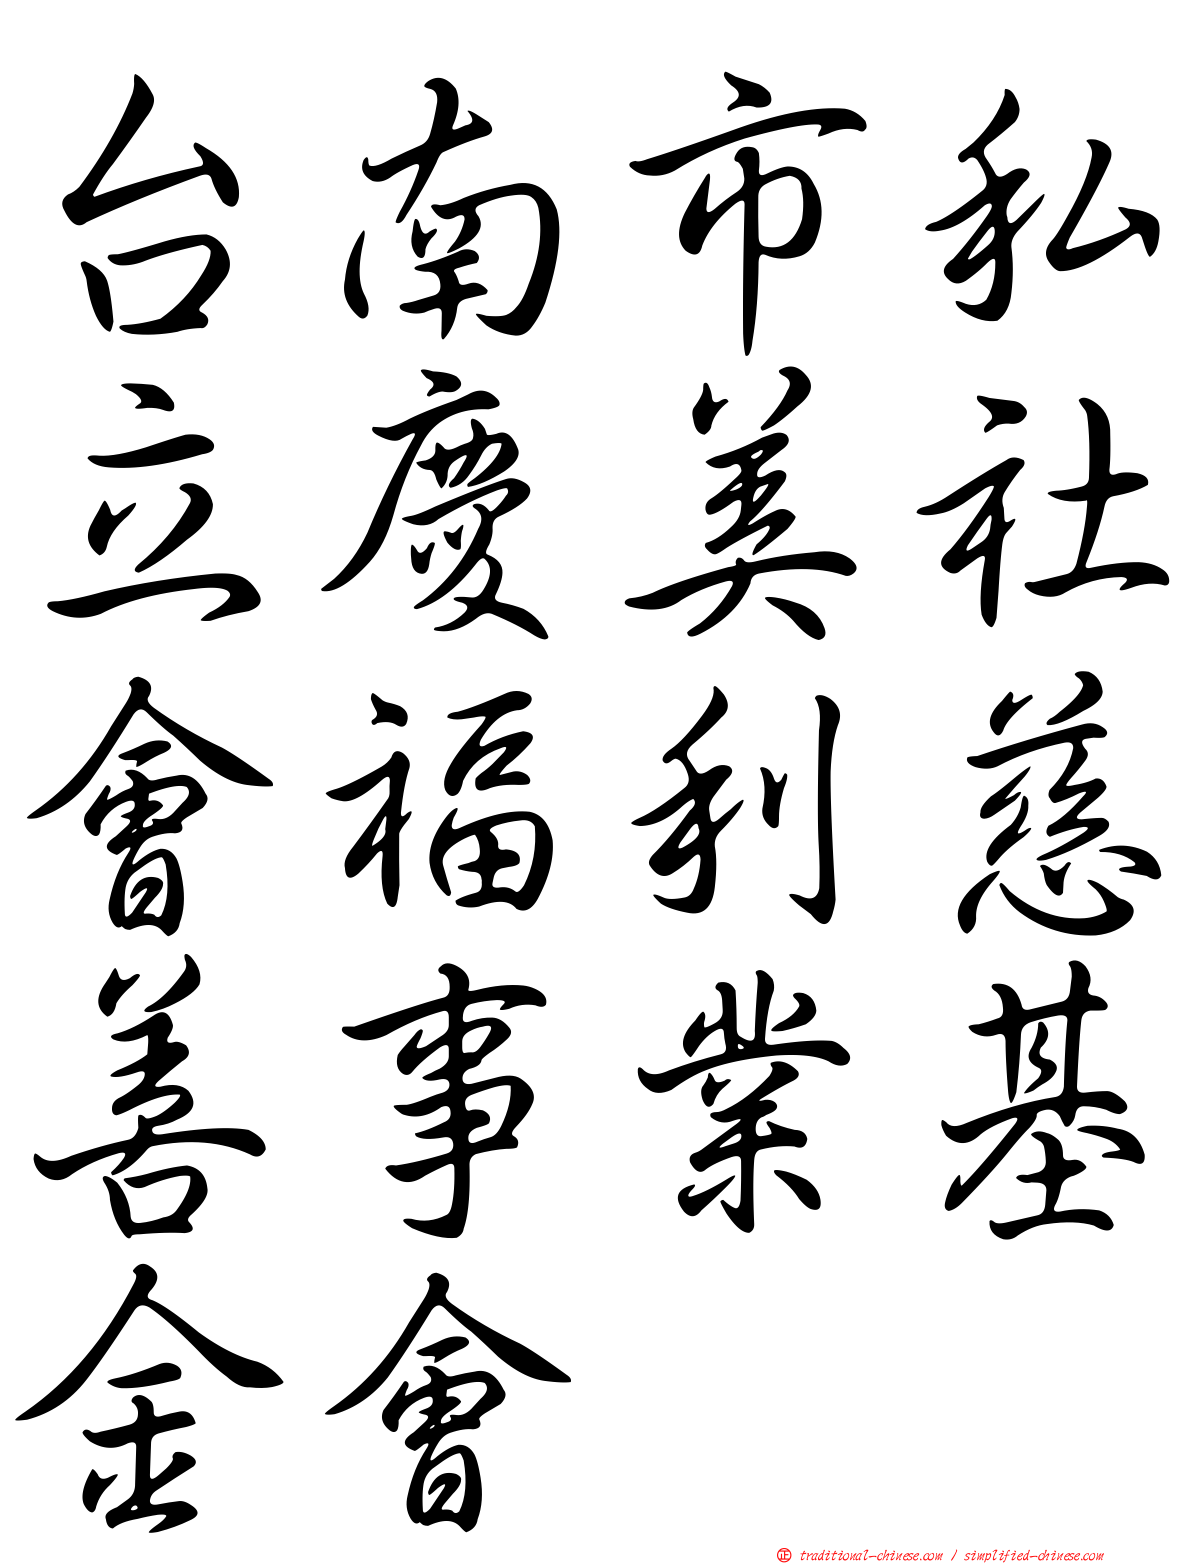 台南市私
立慶美社
會福利慈
善事業基
金會
正 traditional-chinese.com / simplified-chinese.com